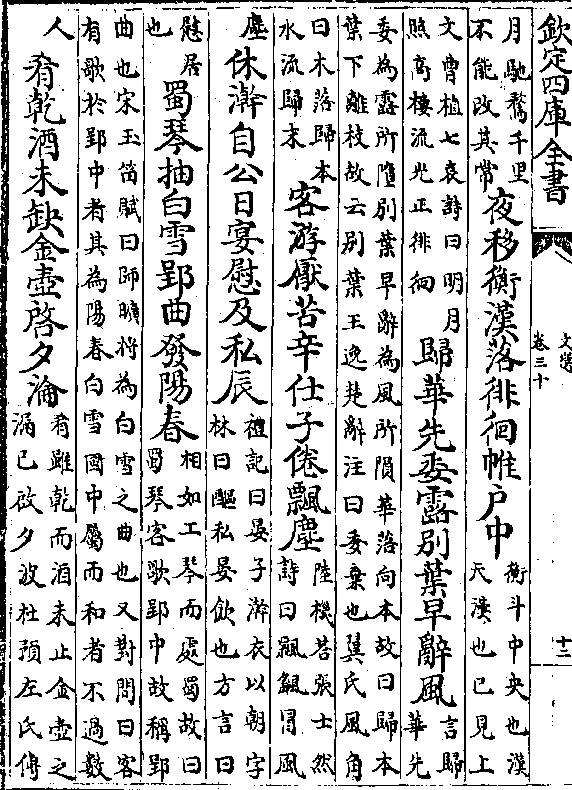 欽定四庫全書
文選
卷三十
十二
月馳騖千里
不能改其常
夜移衡漢落徘徊帷户中
衡斗中央也漢
天漢也已見上
文曹植七哀詩曰明月
照高樓流光正徘徊
歸華先委露別葉早辭風
言歸
華先
委為露所隕別葉早辭為風所隕華落向本故曰歸本
葉下離枝故云別葉王逸楚辭注曰委棄也翼氏風角
曰木落歸本
水流歸末
客游厭苦辛仕子倦飄塵
陸機荅張士然
詩曰飄飖冒風
塵
休澣自公日宴慰及私辰
禮記曰晏子澣衣以朝字
林曰醧私晏飲也方言曰
慰居
也
蜀琴抽白雪郢曲發陽春
相如工琴而處蜀故曰
蜀琴客歌郢中故稱郢
曲也宋玉笛賦曰師曠將為白雪之曲也又對問曰客
有歌於郢中者其為陽春白雪國中屬而和者不過數
人
肴乾酒未缺金壺啓夕淪
肴雖乾而酒未止金壺之
漏已啟夕波杜預左氏傳